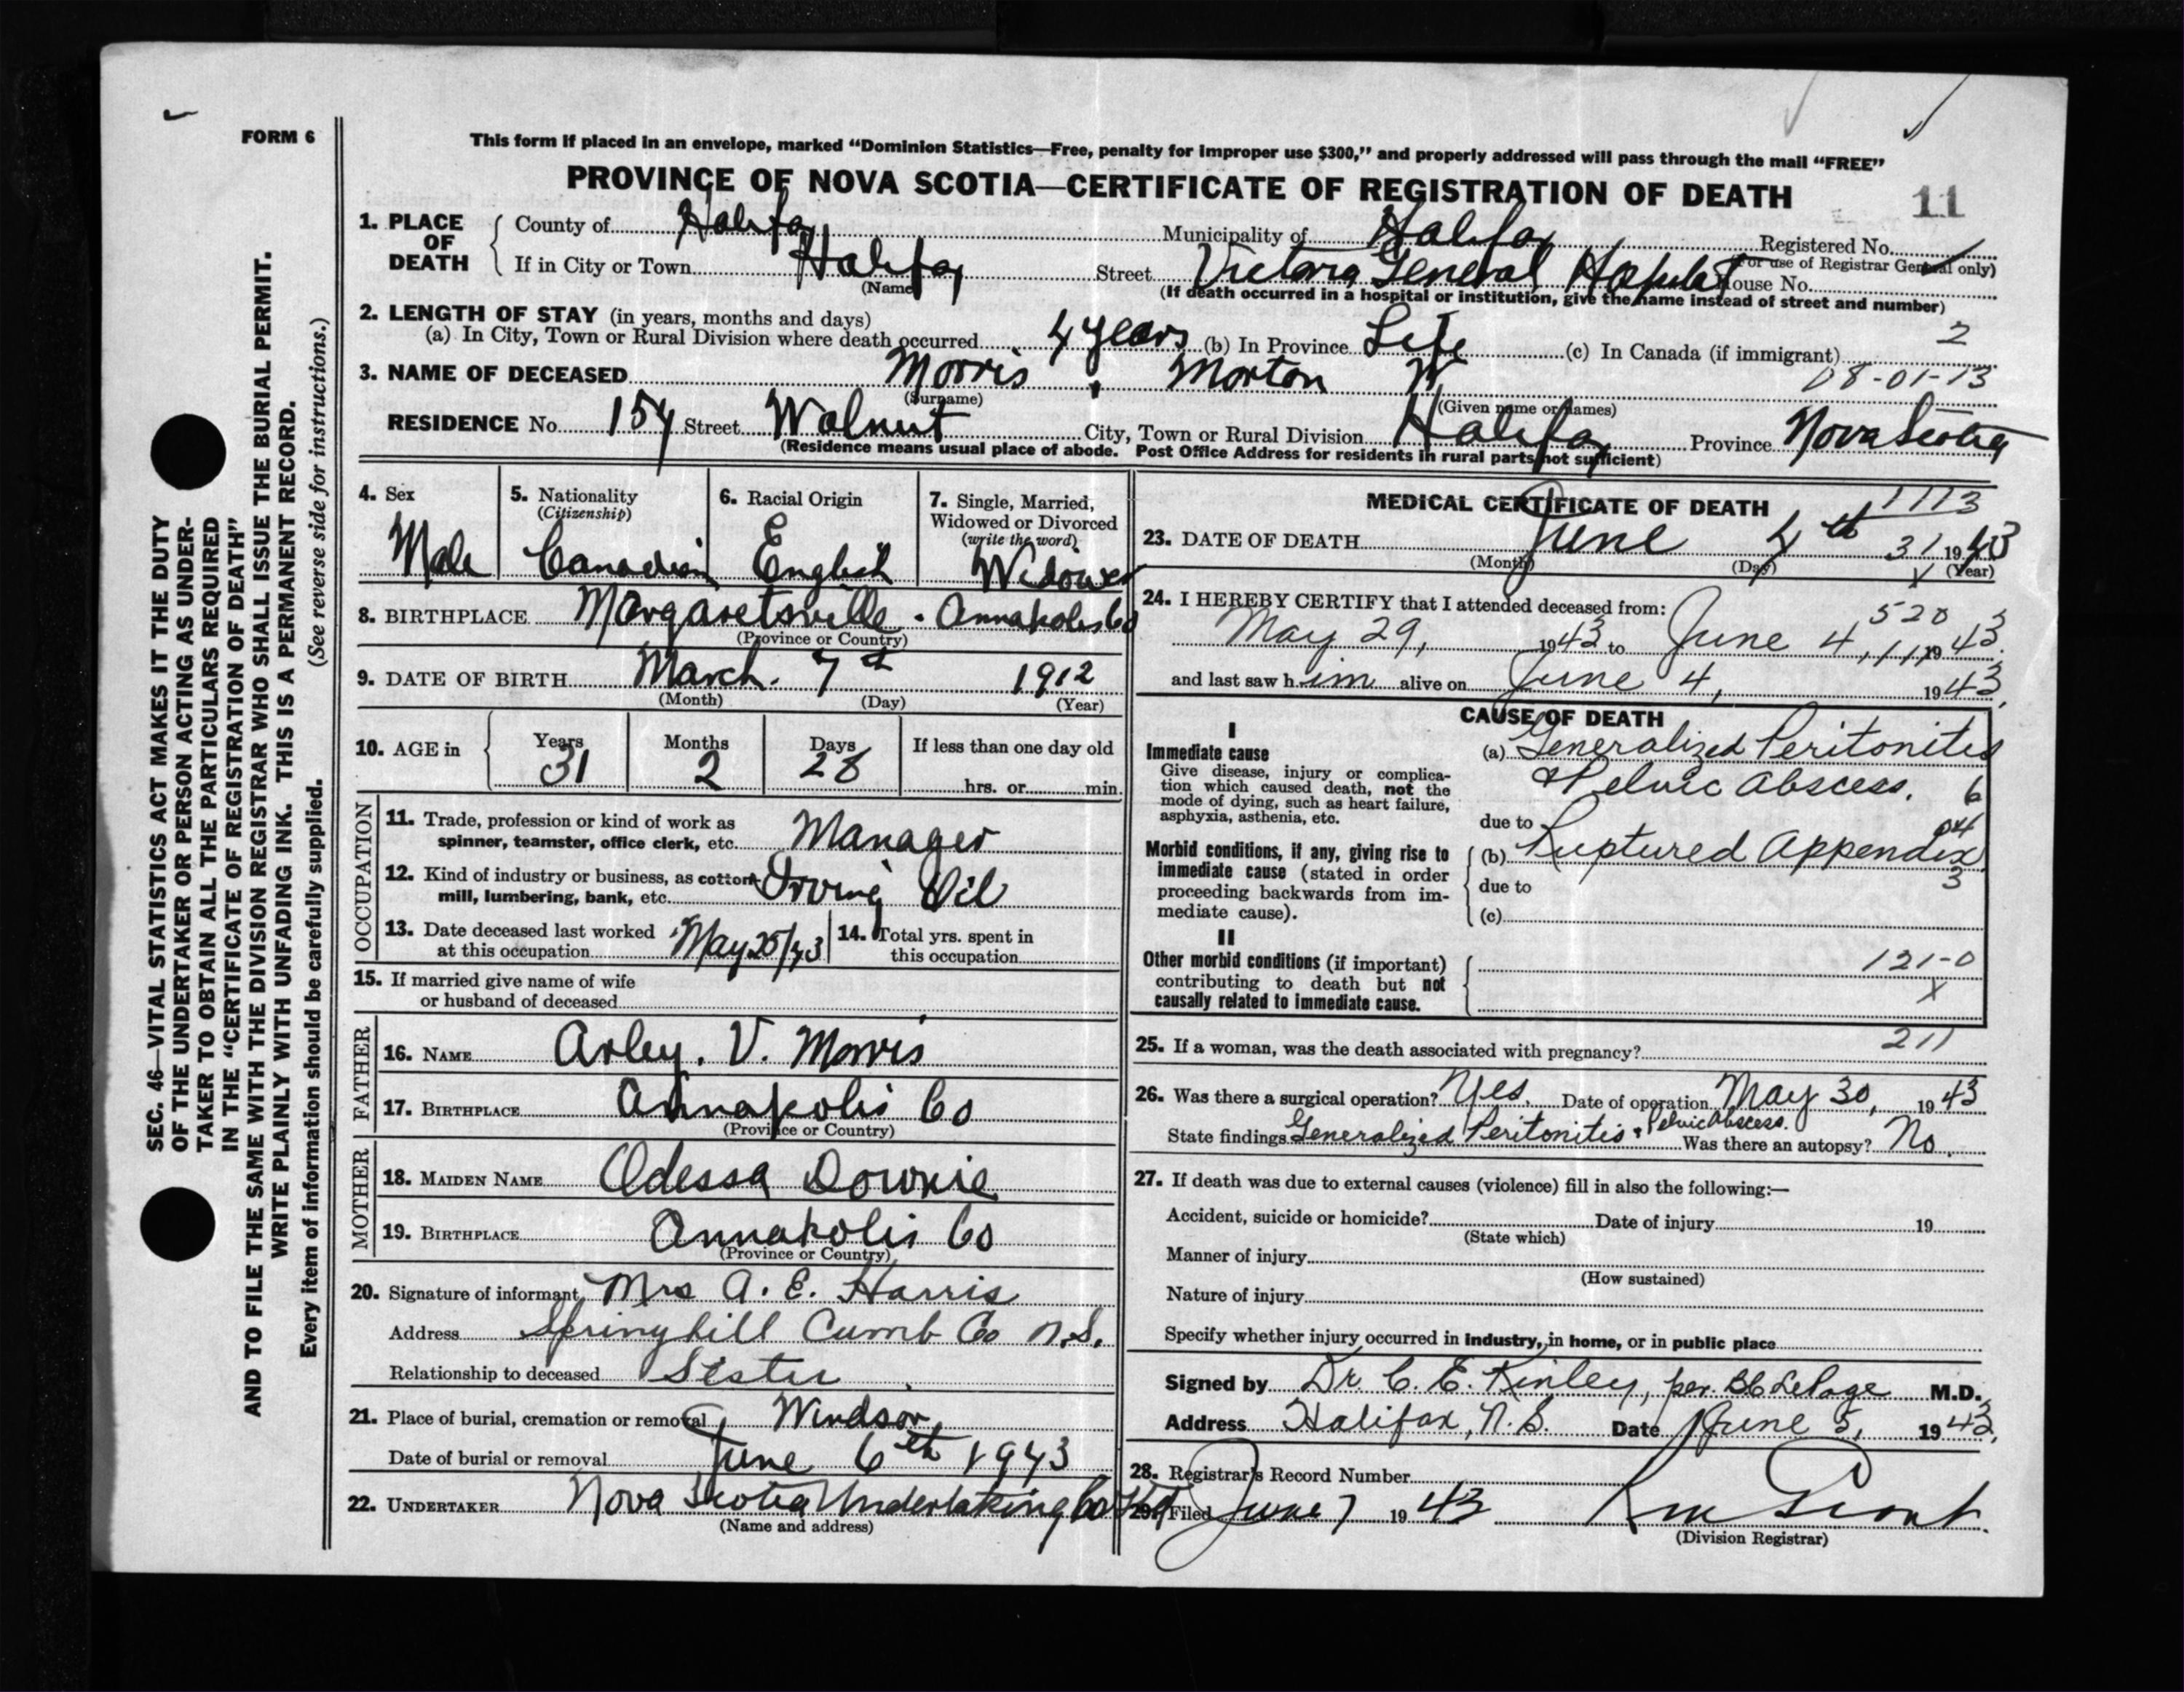 FORM 6
This form if placed in an envelope, marked "Dominion Statistics—Free, penalty for improper use $300," and properly addressed will pass through the mail "FREE"
PROVINCE OF NOVA SCOTIA—CERTIFICATE OF REGISTRATION OF DEATH
11
1. PLACE OF DEATH
County of Halifax Municipality of Halifax Registered No.
(For use of Registrar General only)
If in City or Town Halifax Street Victoria General Hospital House No.
(Name)
(If death occurred in a hospital or institution, give the name instead of street and number)
2. LENGTH OF STAY (in years, months and days)
(a) In City, Town or Rural Division where death occurred 4 years (b) In Province Life (c) In Canada (if immigrant) 2
3. NAME OF DECEASED Morris, Morton W 08-01-13
(Surname) (Given name or names)
RESIDENCE No. 154 Street Walnut City, Town or Rural Division Halifax Province Nova Scotia
(Residence means usual place of abode. Post Office Address for residents in rural parts not sufficient)
4. Sex
Male
5. Nationality
(Citizenship)
Canadian
6. Racial Origin
English
7. Single, Married,
Widowed or Divorced
(write the word)
Widower
8. BIRTHPLACE Margaretsville - Annapolis Co
(Province or Country)
9. DATE OF BIRTH March 7th 1912
(Month) (Day) (Year)
10. AGE in
Years Months Days If less than one day old
31 2 28 hrs. or min.
OCCUPATION
11. Trade, profession or kind of work as
spinner, teamster, office clerk, etc. Manager
12. Kind of industry or business, as cotton
mill, lumbering, bank, etc. Irving Oil
13. Date deceased last worked
at this occupation May 25/43
14. Total yrs. spent in
this occupation
15. If married give name of wife
or husband of deceased
FATHER
16. NAME Arley. V. Morris
17. BIRTHPLACE Annapolis Co
(Province or Country)
MOTHER
18. MAIDEN NAME Odessa Downie
19. BIRTHPLACE Annapolis Co
(Province or Country)
20. Signature of informant Mrs A. E. Harris
Address Springhill Cumb Co N.S.
Relationship to deceased Sister
21. Place of burial, cremation or removal Windsor
Date of burial or removal June 6th 1943
22. UNDERTAKER Nova Scotia Undertaking Co Ltd
(Name and address)
MEDICAL CERTIFICATE OF DEATH
1113
23. DATE OF DEATH June 4th 31 1943
(Month) (Day) (Year)
X
24. I HEREBY CERTIFY that I attended deceased from:
520
May 29, 1943 to June 4, 1943.
and last saw him alive on June 4, 1943,
CAUSE OF DEATH
I
Immediate cause
Give disease, injury or complica-
tion which caused death, not the
mode of dying, such as heart failure,
asphyxia, asthenia, etc.
(a) Generalized Peritonitis
& Pelvic Abscess. 6
due to
04
Morbid conditions, if any, giving rise to
immediate cause (stated in order
proceeding backwards from im-
mediate cause).
(b) Ruptured Appendix
3
due to
(c)
II
Other morbid conditions (if important)
contributing to death but not
causally related to immediate cause.
121-0
X
211
25. If a woman, was the death associated with pregnancy?
26. Was there a surgical operation? Yes. Date of operation May 30, 1943
State findings Generalized Peritonitis & Pelvic Abscess. Was there an autopsy? No.
27. If death was due to external causes (violence) fill in also the following:—
Accident, suicide or homicide? Date of injury 19
(State which)
Manner of injury
(How sustained)
Nature of injury
Specify whether injury occurred in industry, in home, or in public place
Signed by Dr. C. E. Kinley, per. LePage M.D.
Address Halifax, N.S. Date June 5, 1943,
28. Registrar's Record Number
29. Filed June 7 1943
(Division Registrar)
SEC. 46—VITAL STATISTICS ACT MAKES IT THE DUTY
OF THE UNDERTAKER OR PERSON ACTING AS UNDER-
TAKER TO OBTAIN ALL THE PARTICULARS REQUIRED
IN THE "CERTIFICATE OF REGISTRATION OF DEATH"
AND TO FILE THE SAME WITH THE DIVISION REGISTRAR WHO SHALL ISSUE THE BURIAL PERMIT.
WRITE PLAINLY WITH UNFADING INK. THIS IS A PERMANENT RECORD.
Every item of information should be carefully supplied. (See reverse side for instructions.)